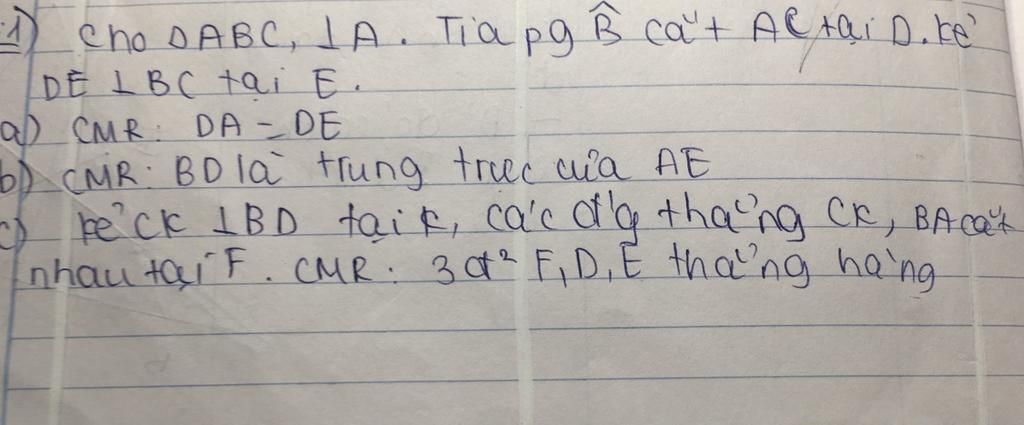 1) Cho ΔABC, ⊥A. Tia pg B̂ cắt AC tại D. kẻ
DE ⊥ BC tại E.
a) CMR: DA = DE
b) CMR: BD là trung trực của AE
c) kẻ CK ⊥BD tại K, các đ'g thẳng CK, BA cắt
nhau tại F. CMR: 3 đ² F, D, E thẳng hàng